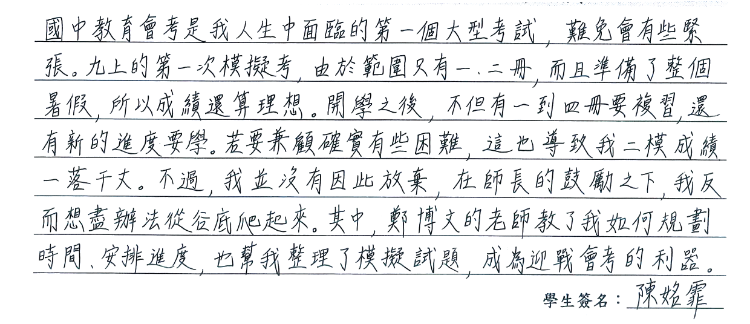 國中教育會考是我人生中面臨的第一個大型考試，難免會有些緊
張。九上的第一次模擬考，由於範圍只有一、二冊，而且準備了整個
暑假，所以成績還算理想。開學之後，不但有一到四冊要複習，還
有新的進度要學。若要兼顧確實有些困難，這也導致我二模成績
一落千丈。不過，我並沒有因此放棄，在師長的鼓勵之下，我反
而想盡辦法從谷底爬起來。其中，鄭博文的老師教了我如何規劃
時間、安排進度，也幫我整理了模擬試題，成為迎戰會考的利器。
學生簽名：陳姳霏